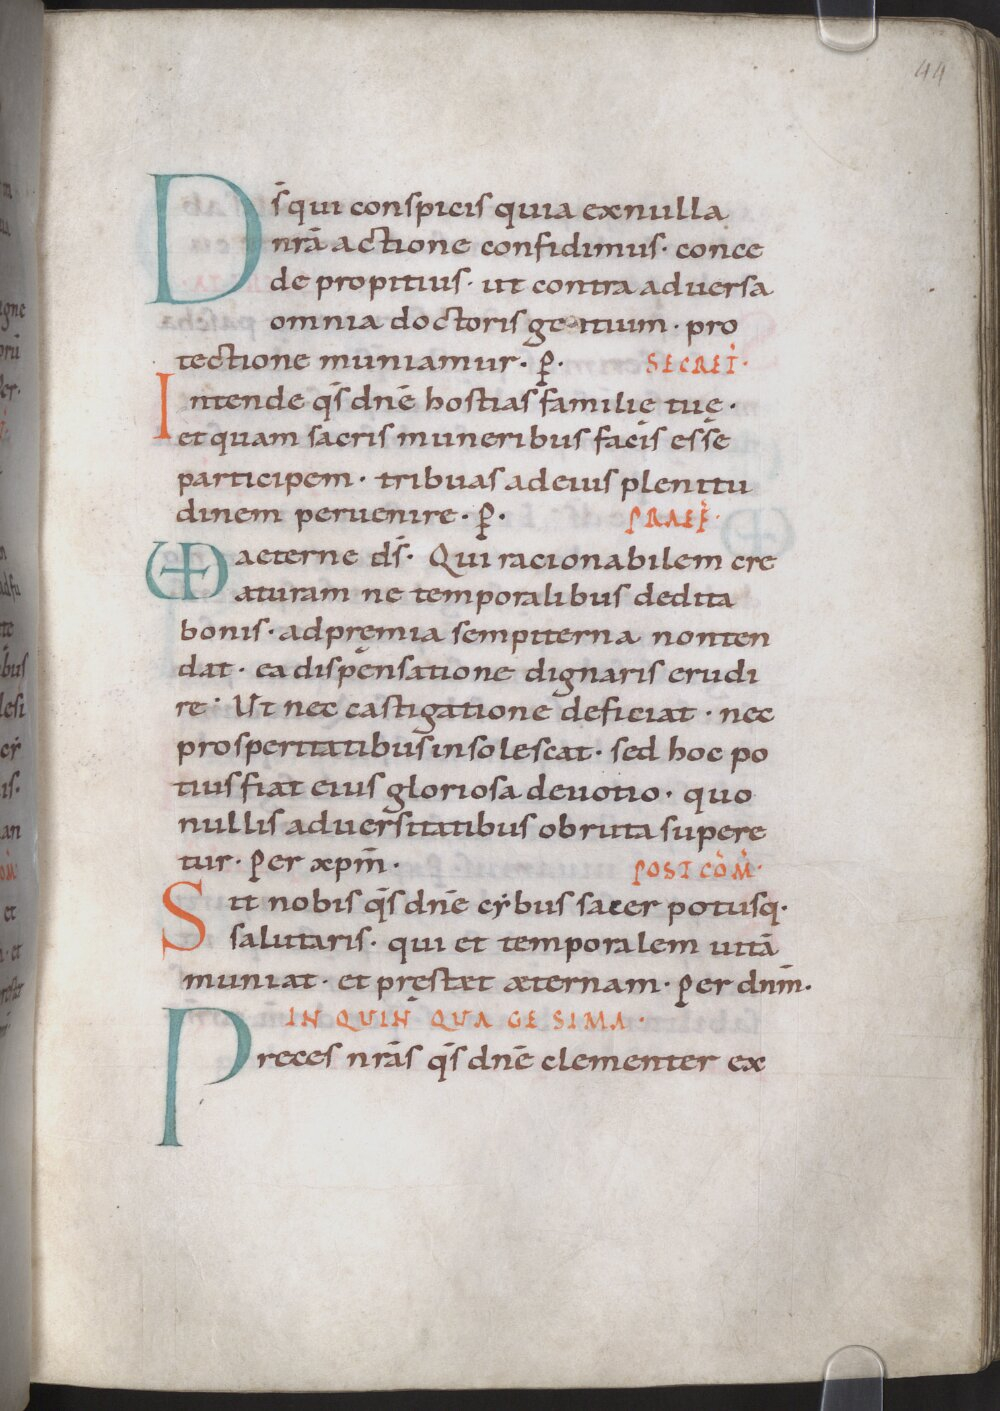 44
Ds̄ qui conspicis quia ex nulla
nrā actione confidimus · conce
de propitius · ut contra aduersa
omnia doctoris gentium · pro
tectione muniamur · P̄ · SECRET̄ ·
Intende qs̄ dnē hostias familie tuę ·
et quam sacris muneribus facis esse
participem · tribuas ad eius plenitu
dinem peruenire · P̄ · PRAEF̄ ·
VD aeterne ds̄ · Qui racionabilem cre
aturam ne temporalibus dedita
bonis · ad pręmia sempiterna non ten
dat · ea dispensatione dignaris erudi
re · Ut nec castigatione deficiat · nec
prosperitatibus insolescat · sed hoc po
tius fiat eius gloriosa deuotio · quo
nullis aduersitatibus obruta supere
tur · Per xpm̄ · POSTCOM̄ ·
Sit nobis qs̄ dnē cybus sacer potusq ·
salutaris · qui et temporalem uitā
muniat · et pręstæt æternam · Per dnm̄ ·
IN QUINQUAGESIMA ·
Preces nrās qs̄ dnē clementer ex